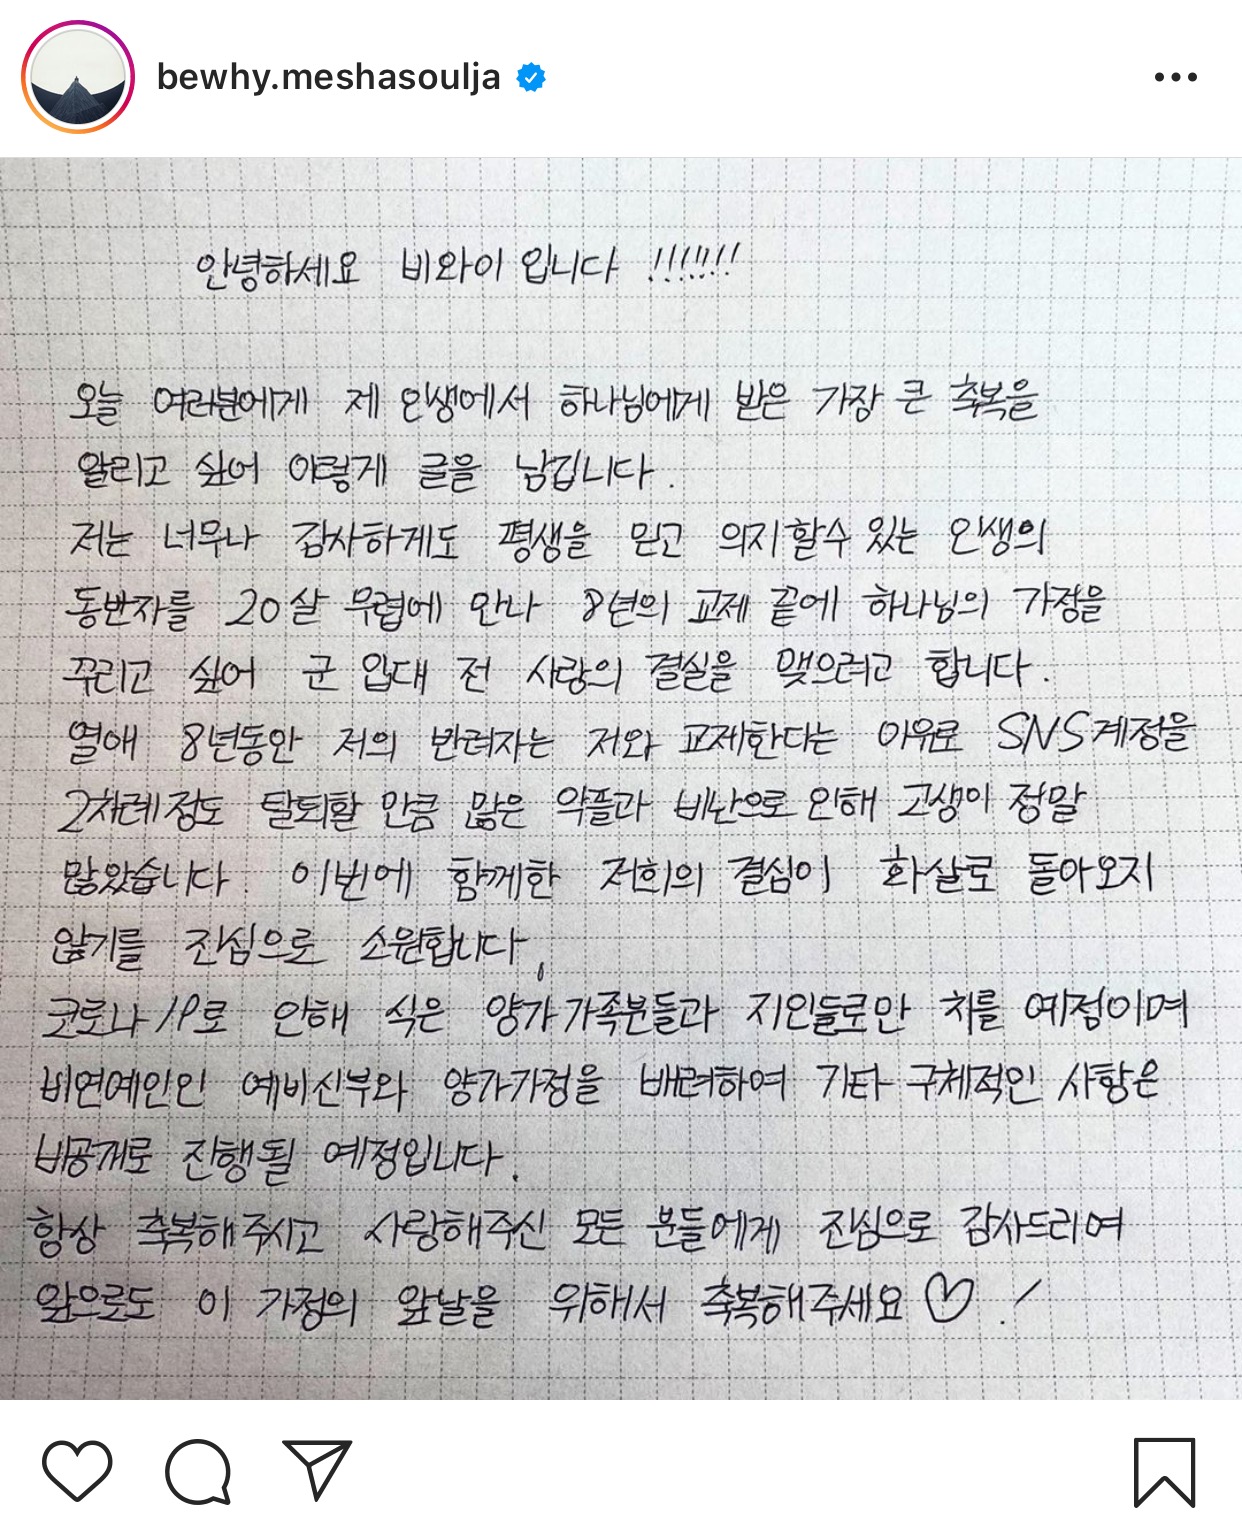 bewhy.meshasoulja
안녕하세요 비와이 입니다 !!!!!!!
오늘 여러분에게 제 인생에서 하나님에게 받은 가장 큰 축복을
알리고 싶어 이렇게 글을 남깁니다.
저는 너무나 감사하게도 평생을 믿고 의지할수 있는 인생의
동반자를 20살 무렵에 만나 8년의 교제 끝에 하나님의 가정을
꾸리고 싶어 군 입대 전 사랑의 결실을 맺으려고 합니다.
열애 8년동안 저의 반려자는 저와 교제한다는 이유로 SNS계정을
2차례정도 탈퇴할 만큼 많은 악플과 비난으로 인해 고생이 정말
많았습니다. 이번에 함께한 저희의 결심이 화살로 돌아오지
않기를 진심으로 소원합니다.
코로나19로 인해 식은 양가가족분들과 지인들로만 치를 예정이며
비연예인인 예비신부와 양가가정을 배려하여 기타 구체적인 사항은
비공개로 진행될 예정입니다.
항상 축복해주시고 사랑해주신 모든 분들에게 진심으로 감사드리며
앞으로도 이 가정의 앞날을 위해서 축복해주세요♡.